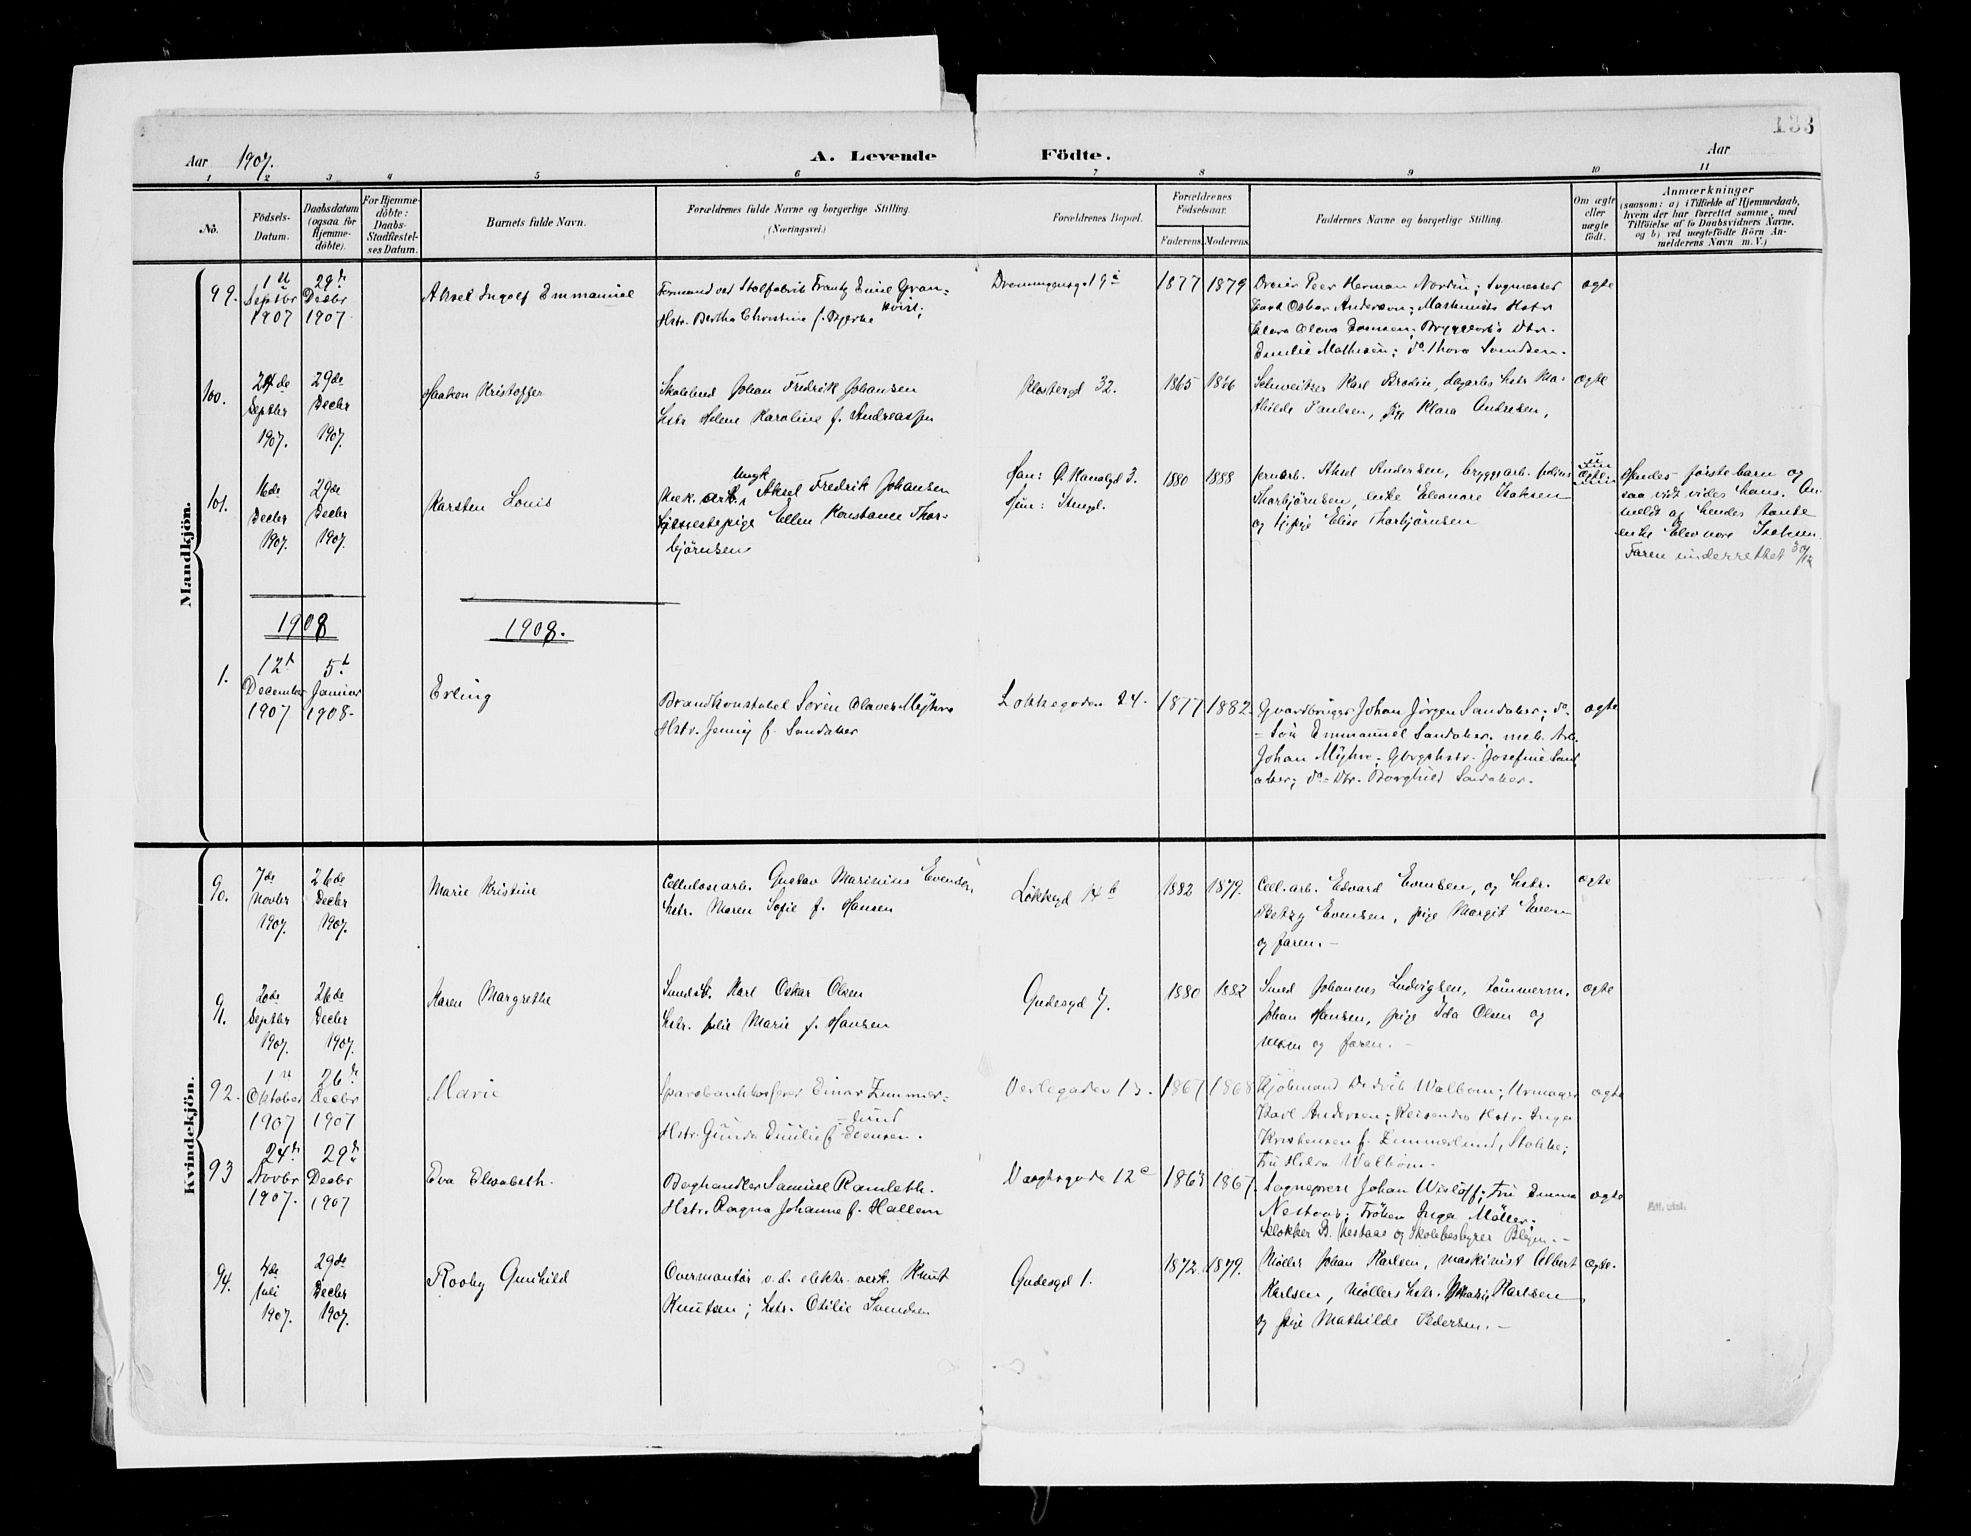 133
Aar 1907.
A. Levende Födte.
Aar
1 2 3 4 5 6 7 8 9 10 11
No.
Födsels-
Datum.
Daabsdatum
(ogsaa for
Hjemme-
döbte).
For Hjemme-
döbte:
Daabs-
Stadfæstel-
ses Datum.
Barnets fulde Navn.
Forældrenes fulde Navne og borgerlige Stilling.
(Næringsvei.)
Forældrenes Bopæl.
Forældrenes
Födselsaar.
Faderens. Moderens.
Faddernes Navne og borgerlige Stilling.
Om ægte
eller
uægte
født.
Anmærkninger
(saasom: a) i Tilfælde af Hjemmedaab,
hvem der har forrettet samme, med
Tilföielse af to Daabsvidners Navne,
og b) ved uægtefödte Börn An-
melderens Navn m. V.)
Mandkjön.
99.
1
Septbr
1907
29de
Decbr
1907
Aksel Ingolf Emmanuel
Formand ved Stolfabrik Frantz Emil Gran-
kvist;
Hstr. Bertha Christine f. Bjerke
Dronningensgd 19a
1877 1879
Dreier Peer Herman Nordin; Sagmester
Carl Oskar Andersen; Maskinists Hstr
Emilie Mathisen; do Thora Svendsen.
ægte
100.
24de
Septbr
1907.
29de
Decbr
1907.
Haakon Kristoffer
Johan Fredrik Johansen
Hstr Helene Karoline f. Andreassen
Klostergd 32.
1865 1866
Schweitser Karl Brodin, dagarbs hstr Ma-
thilde Paulsen, pige Klara Andresen,
ægte
101.
16de
Decbr
1907.
29de
Decbr
1907.
Karsten Louis
Ungk
Aksel Fredrik Johansen
Ellen Konstance Thor-
björnsen
Han: Ø. Kanalgd 3.
Hun: Stengd.
1880 1888
jernarb. Aksel Andersen, bryggearb. Julius
Thorbjörnsen, enke Eleonore Isaksen
og pige Elise Thorbjörnsen
uægte
Hendes förste barn og
saa vidt vides hans. An-
meldt af hendes tante
enke Eleonore Isaksen.
Faren underrettet 30/12
1908
1908.
1.
12te
December
1907
5te
Januar
1908.
Erling
Brandkonstabel Søren Olaves Myhre
Hstr. Jenny f. Sandaker
Løkkegaden 24.
1877 1882.
Gaardbruger Johan Jörgen Sandaker; do-
Sön Emmanuel Sandaker, mek. Arb.
Johan Myhre; Gbrgshstr. Josefine Sand-
aker; do-Dtr. Borghild Sandaker.
ægte
Kvindekjön.
90.
7de
Novbr
1907.
26de
Decbr
1907.
Marie Kristine
Cellulosearb. Gustav Marinius Evensen,
hstr. Maren Sofie f. Hansen
Løkkegd 14b
1882 1879.
Cell. arb. Edvard Evensen, og hstr.
Betzy Evensen, pige Margit Evensen
og faren.-
ægte
91.
26de
Septbr
1907.
26de
Decbr
1907.
Karen Margrethe
Karl Oskar Olsen
hstr. Julie Marie f. Hansen
Gudesgd 7.
1880 1882
Smed Johannes Ludvigsen, tömmerm.
Johan Hansen, pige Ida Olsen og
moren og faren.-
ægte
92.
1
Oktober
1907
26de
Decbr
1907
Marie
Sparebankkasserer Einar Zimmer-
lund
Hstr. Gunda Emilie f. Svensen.
Verlegaden 13.
1867 1868
Kjöbmand Didrik Walbom; Urmager
Karl Andersen; Reisendes Hstr. Inga
Kristensen f. Zimmerlund, Stokke;
Fru Hilda Walbom.
ægte
93
24de
Novbr
1907.
29de
Decbr
1907
Eva Elisabeth.
Boghandler Samuel Ramleth.
Hstr. Ragna Johanne f. Hallem
Vognsgade 12c
1863 1867.
Sogneprest Johan Wisløff; Fru Emma
Nestaas; Fröken Inga Möller;
Klokker B. Nestaas og Skolebestyrer Blegen.-
ægte
Att. utst.
94.
4de
Juli
1907.
29de
Decbr
1907.
Rooby Gunhild
Overmontör v. d. elektr. verk. Knut
Knutsen; hstr. Otilie Svendsen
Gudesgd 1.
1872. 1879.
Möller Johan Karlsen, maskinist Albert
Karlsen, möllers hstr. Marie Karlsen
og pige Mathilde Pedersen.-
ægte.